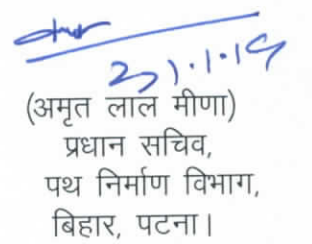 31.1.19
(अमृत लाल मीणा)
प्रधान सचिव,
पथ निर्माण विभाग,
बिहार, पटना।